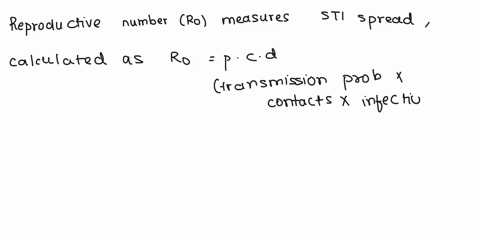 Reproductive number (Ro) measures STI spread,
calculated as Ro = p.c.d
(transmission prob x
contacts x infectiu